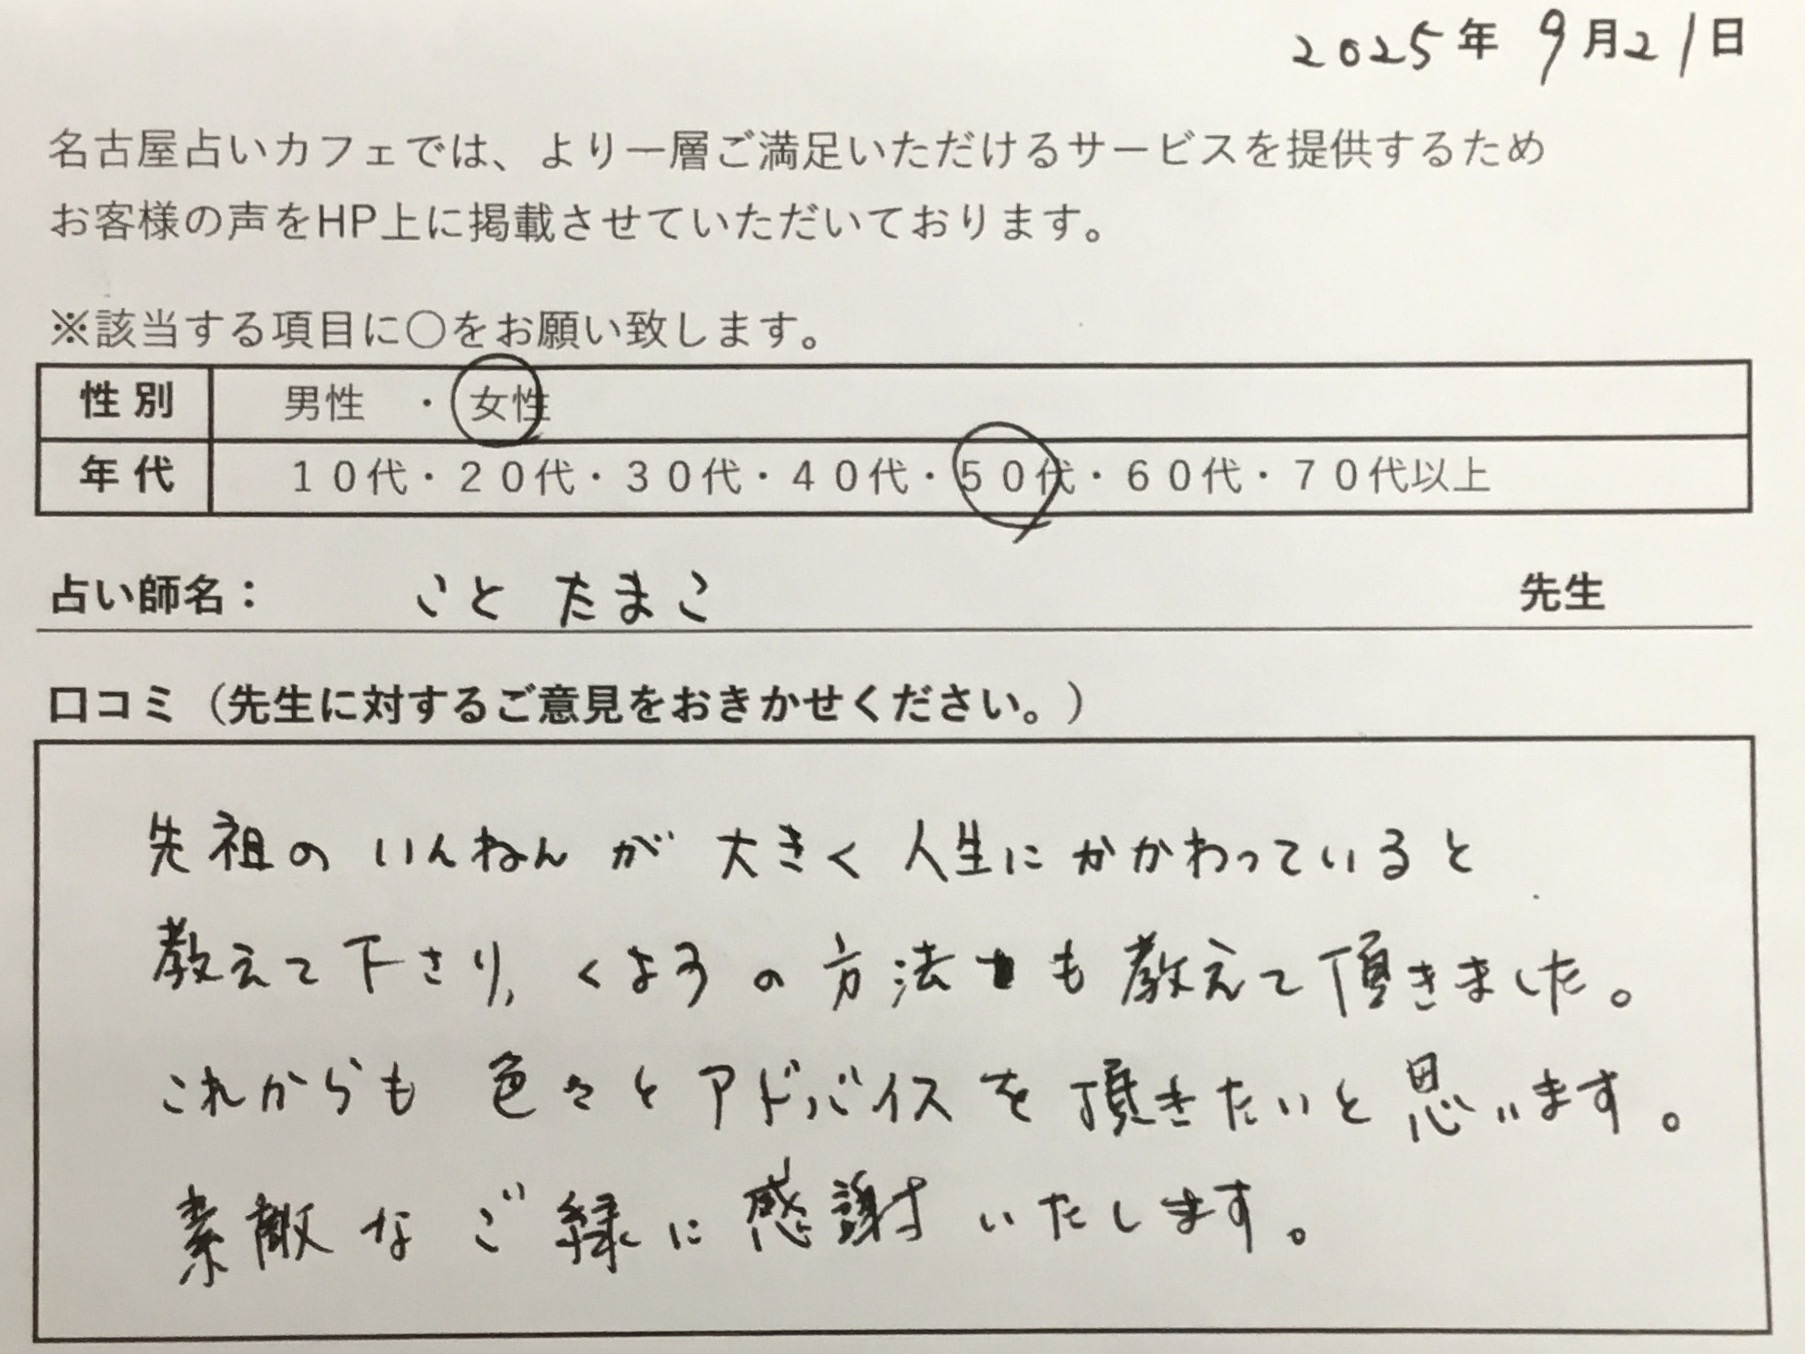 2025年 9月21日
名古屋占いカフェでは、より一層ご満足いただけるサービスを提供するため
お客様の声をHP上に掲載させていただいております。
※該当する項目に○をお願い致します。
性別 男性 ・ 女性
年代 10代・20代・30代・40代・50代・60代・70代以上
占い師名： ことたまこ 先生
口コミ（先生に対するご意見をおきかせください。）
先祖のいんねんが大きく人生にかかわっていると
教えて下さり、くようの方法も教えて頂きました。
これからも色々とアドバイスを頂きたいと思います。
素敵なご縁に感謝いたします。